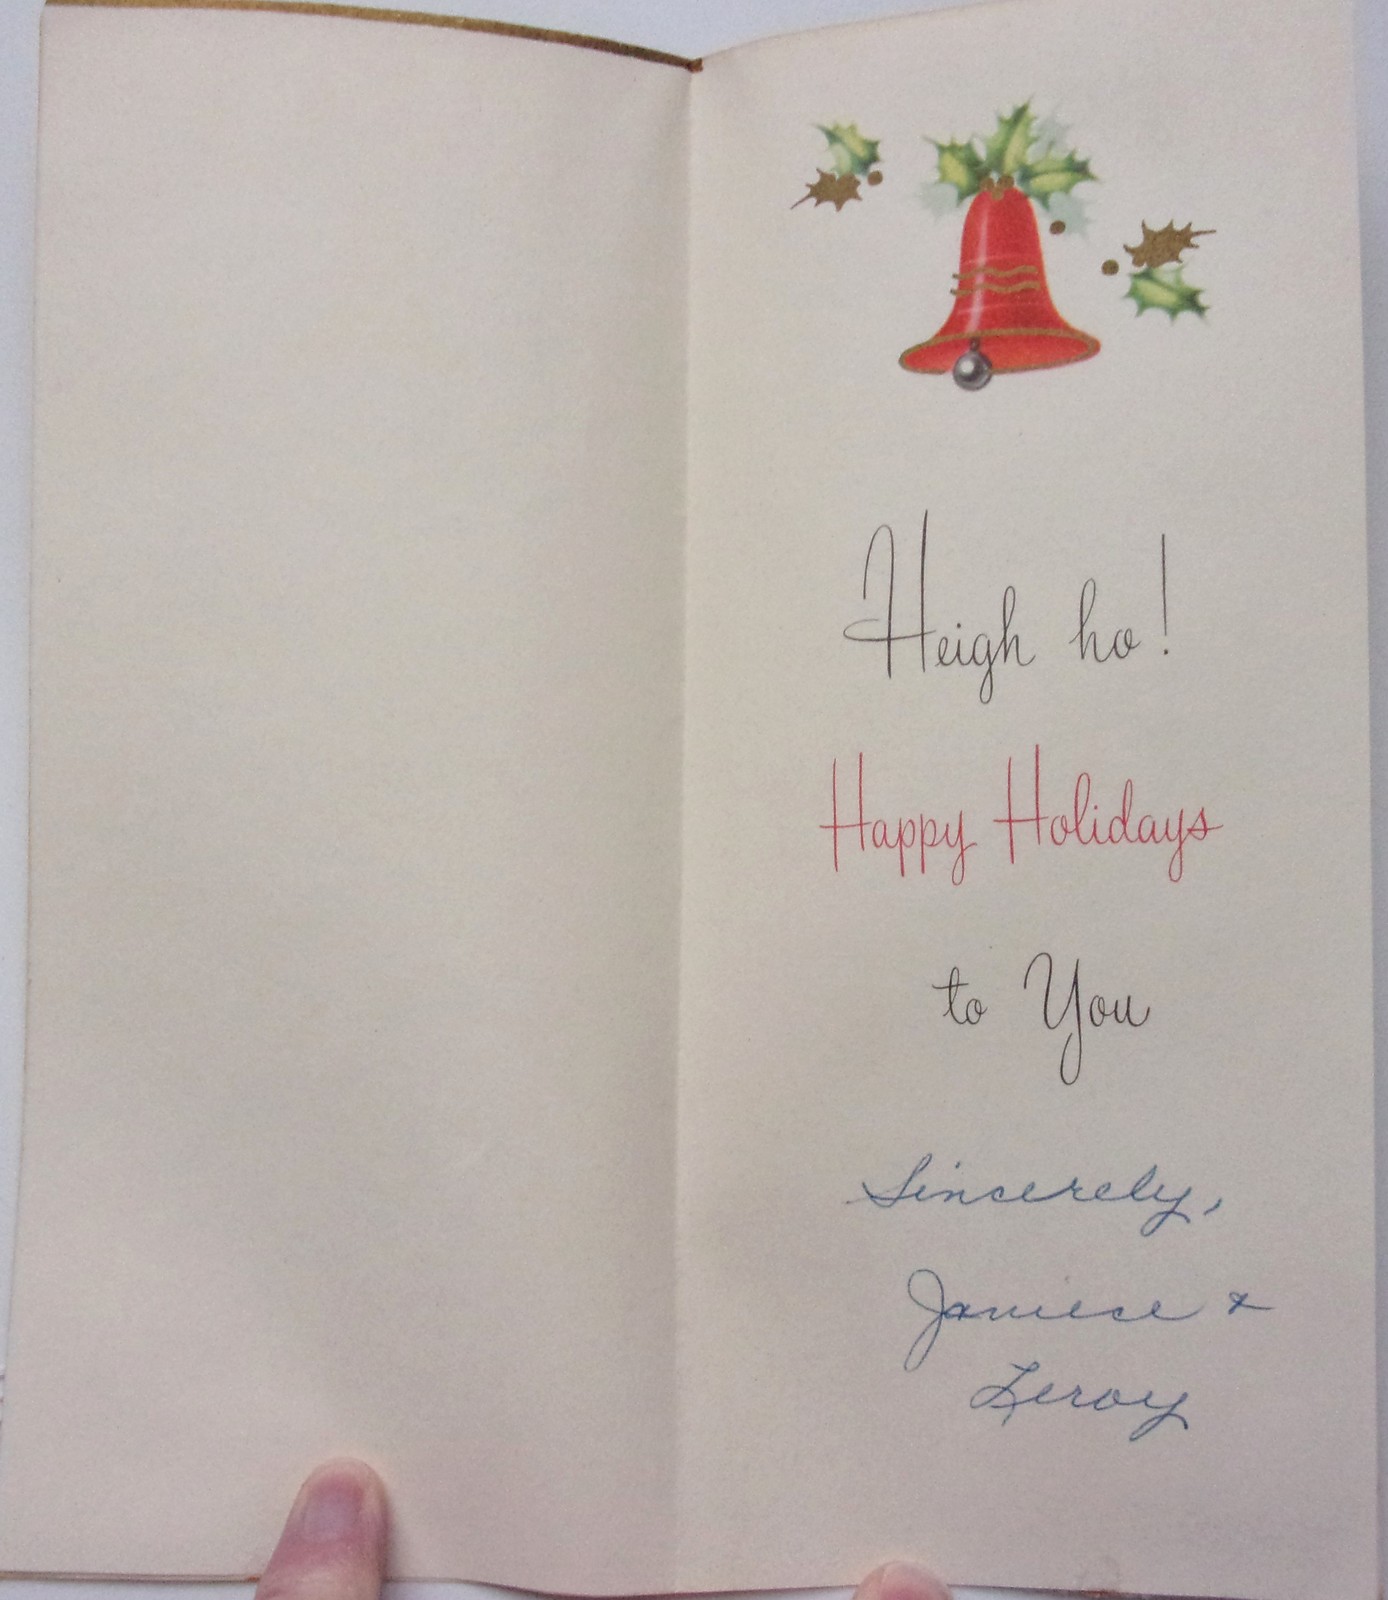 Heigh ho!
Happy Holidays
to You
Sincerely,
Janiece &
Leroy